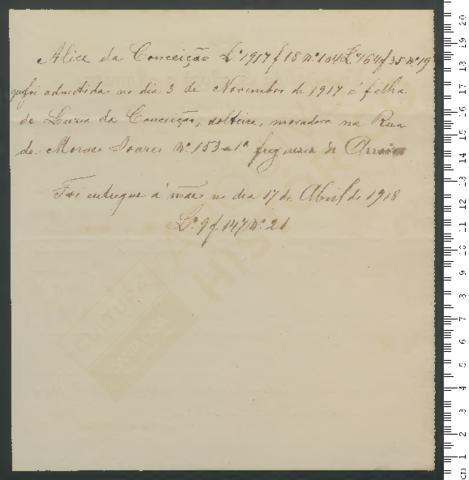 Alice da Conceição Lº 1917 f 18 nº 104 Lº 164 f 35 nº 19
que foi admitida no dia 3 de Novembro de 1917 é filha
de Luzia da Conceição, solteira, moradora na Rua
de Moraes Soares nº 153 1º freguesia de Arroios
Foi entregue á mãe no dia 17 de Abril de 1918
Lº 9 f 147 nº 21